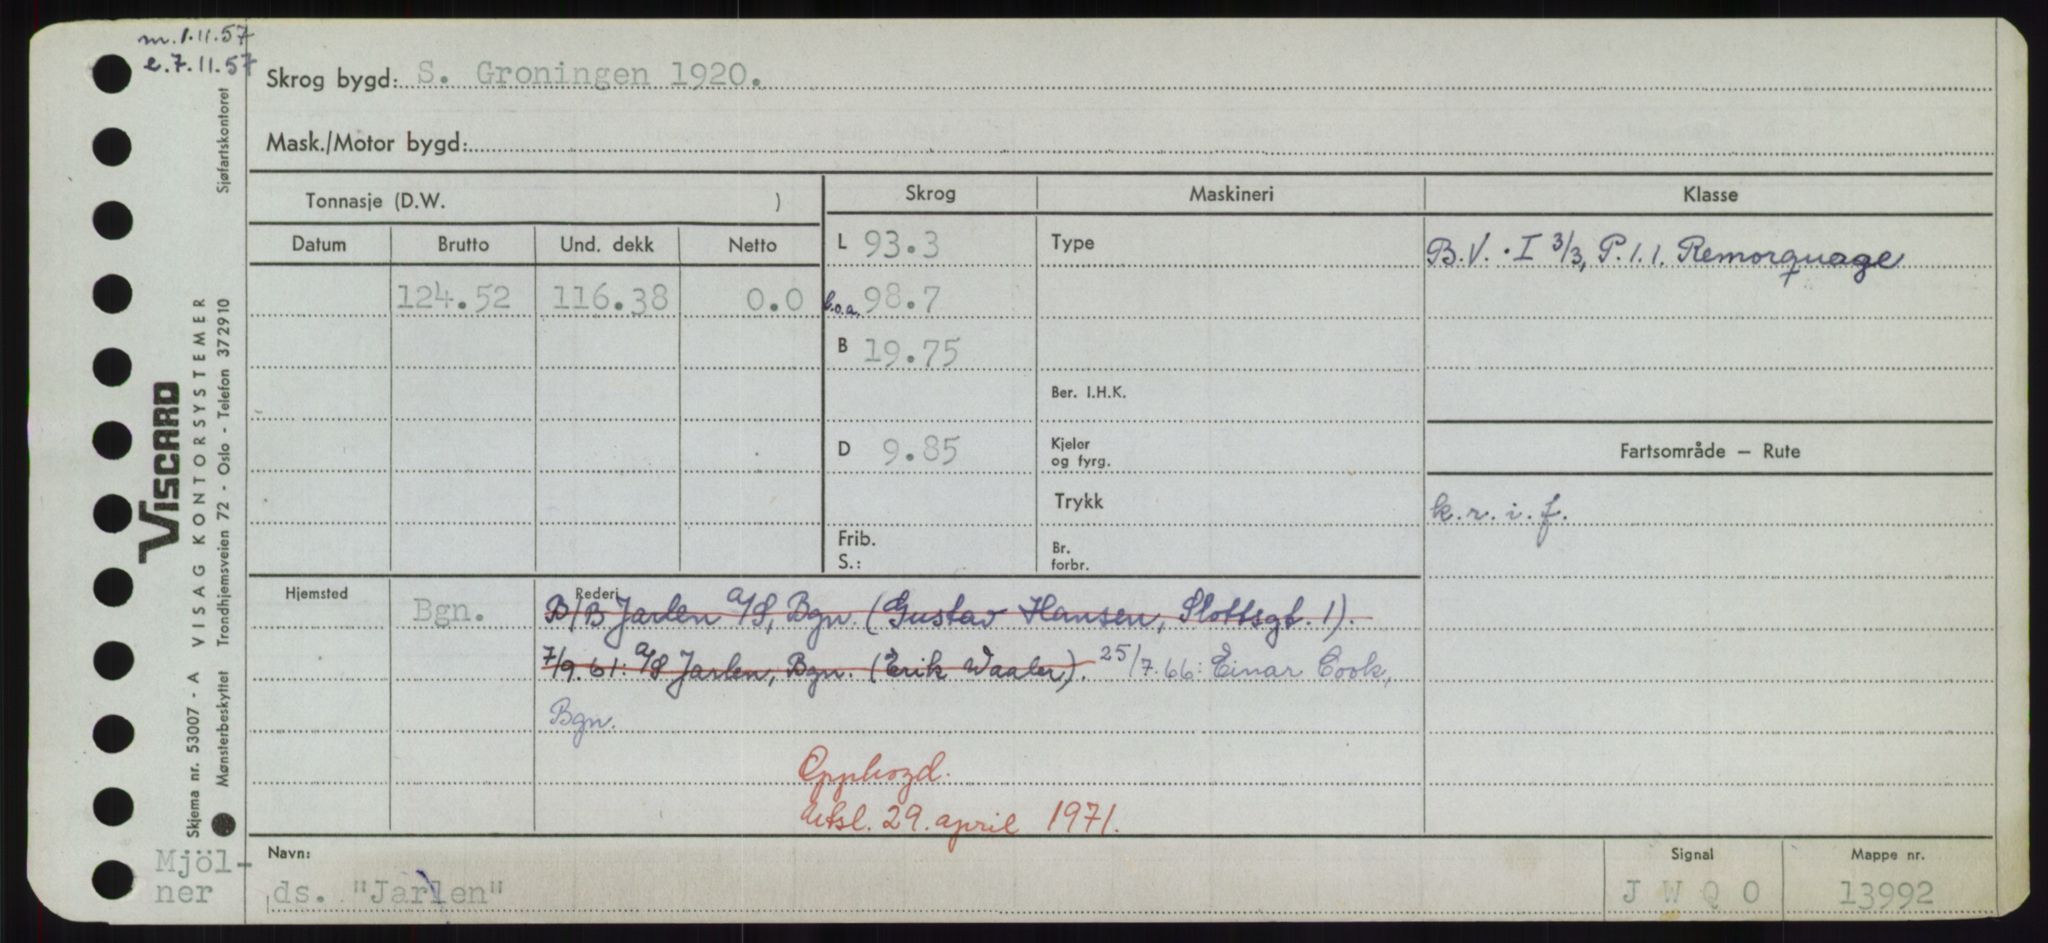 m. 1.11.57
e. 7.11.57
Skrog bygd: S. Groningen 1920.
Mask./Motor bygd:
Tonnasje (D.W. )
Skrog
Maskineri
Klasse
Datum Brutto Und. dekk Netto
L 93.3
Type
B.V. · I 3/3, P. 1. 1. Remorquage
124.52 116.38 0.0
l.o.a. 98.7
B 19.75
Ber. I.H.K.
D 9.85
Kjeler
og fyrg.
Fartsområde — Rute
Trykk
k. r. i. f.
Frib.
S.:
Br.
forbr.
Hjemsted Bgn.
Rederi
B/B Jarlen A/S, Bgn. (Gustav Hansen, Slottsgt. 1).
7/9.61: A/S Jarlen, Bgn. (Erik Waaler). 25/7.66: Einar Cook,
Bgn.
Opphogd.
Utsl. 29. april 1971.
Navn:
ds. "Jarlen"
Signal
J W Q O
Mappe nr.
13992
Mjöl-
ner
VISCARD
VISAG KONTORSYSTEMER
Skjema nr. 53007 - A
Mønsterbeskyttet Trondhjemsveien 72 - Oslo - Telefon 372910 Sjøfartskontoret